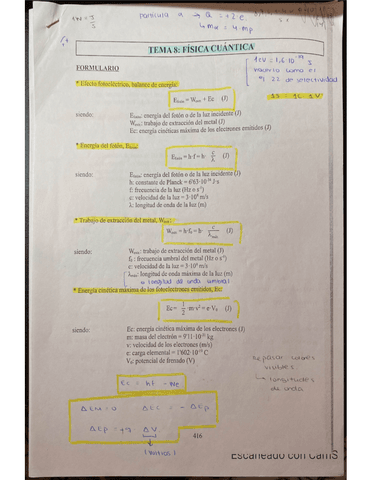 1W = 1 J/s
partícula α → q = +2e
4 mα = 4 mp
TEMA 8: FÍSICA CUÁNTICA
1eV = 1,6·10⁻¹⁹ J
hacerlo como el
nº 22 de selectividad
FORMULARIO
* Efecto fotoeléctrico, balance de energía:
Eluz = Wext + Ec (J)
1J = 1C · 1V
siendo: Eluz: energía del fotón o de la luz incidente (J)
Wext: trabajo de extracción del metal (J)
Ec: energía cinética máxima de los electrones emitidos (J)
* Energía del fotón, Eluz:
Eluz = h·f = h· c/λ (J)
siendo: Eluz: energía del fotón o de la luz incidente (J)
h: constante de Planck = 6'63·10⁻³⁴ J·s
f: frecuencia de la luz (Hz o s⁻¹)
c: velocidad de la luz = 3·10⁸ m/s
λ: longitud de onda de la luz (m)
* Trabajo de extracción del metal, Wext:
Wext = h·f₀ = h· c/λ (J)
siendo: Wext: trabajo de extracción del metal (J)
f₀: frecuencia umbral del metal (Hz o s⁻¹)
c: velocidad de la luz = 3·10⁸ m/s
longitud de onda máxima de la luz (m)
o longitud de onda umbral
* Energía cinética máxima de los fotoelectrones emitidos, Ec:
Ec = 1/2 ·m·v² = e·V₀ (J)
siendo: Ec: energía cinética máxima de los electrones (J)
m: masa del electrón = 9'11·10⁻³¹ kg
v: velocidad de los electrones (m/s)
e: carga elemental = 1'602·10⁻¹⁹ C
V₀: potencial de frenado (V)
Repasar colores
visibles
→ longitudes
de onda
Ec = hf - We
ΔEM = 0 ΔEc = - ΔEp
ΔEp = +q ΔV
416
(voltios)
Escaneado con CamS